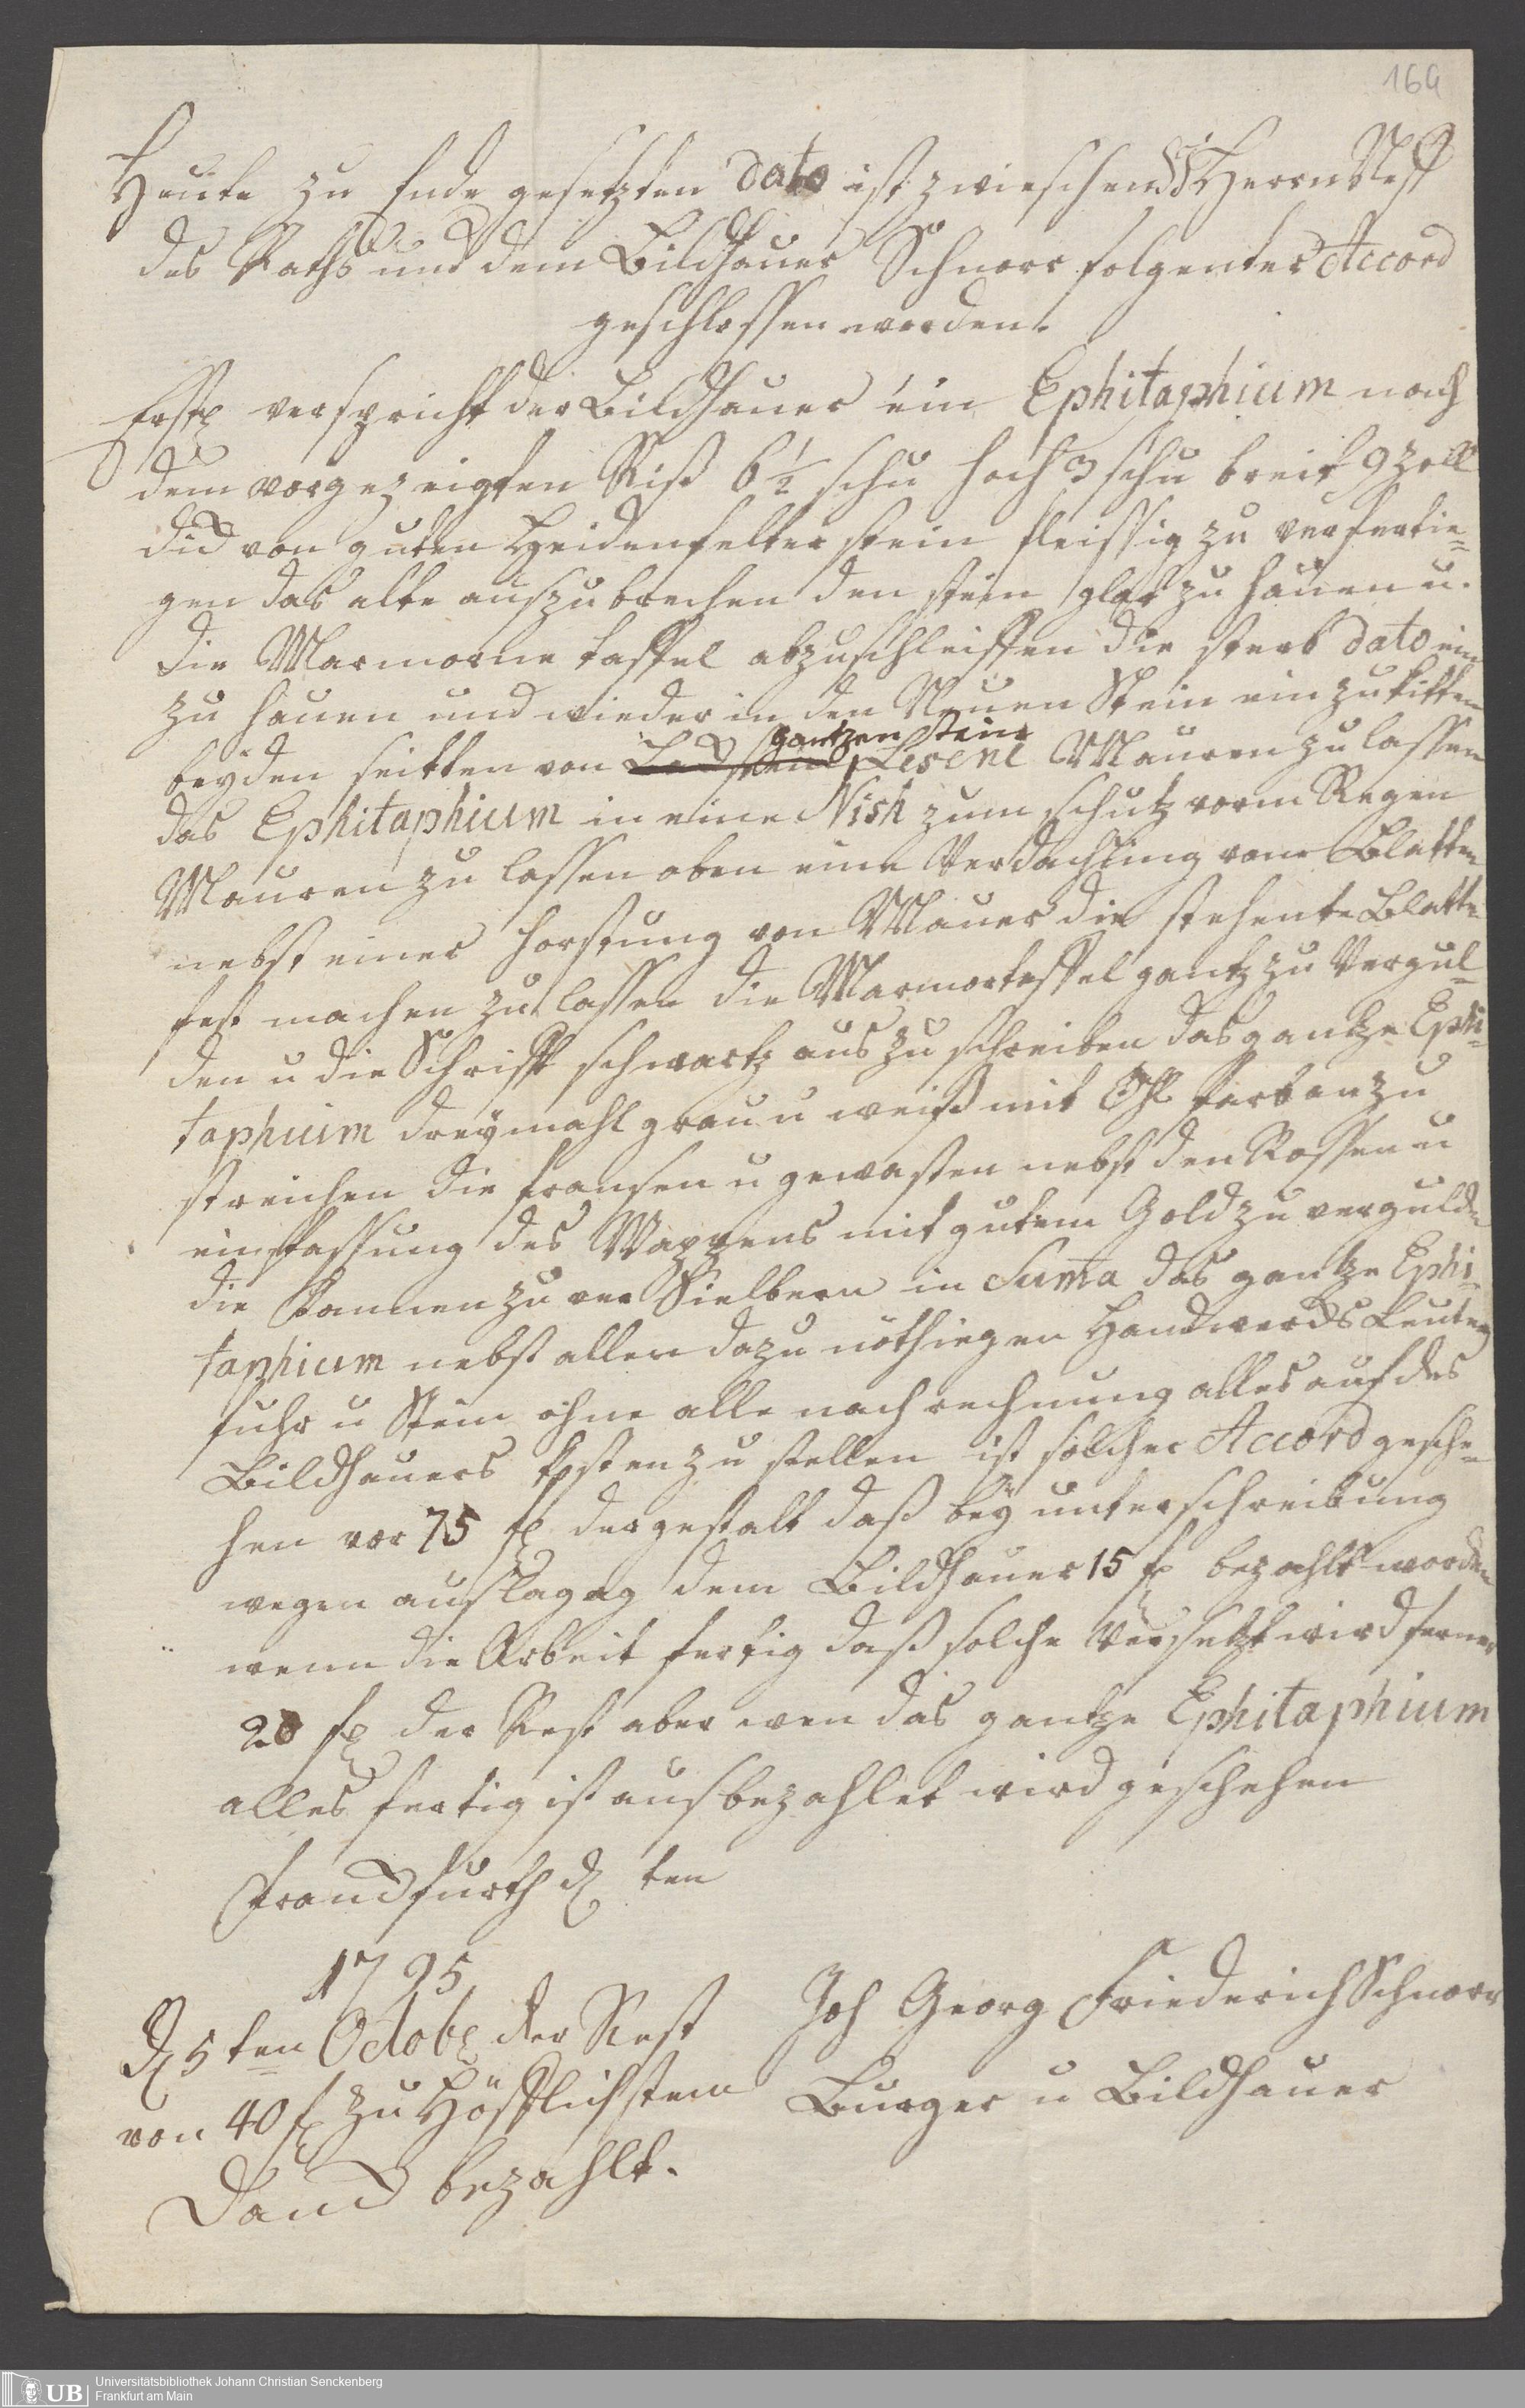 164
Heute zu Ende gesetzten dato ist zwieschen Herrn Neff
des Raths und dem Bildhauer Schnorr folgenter Accord
geschlossen worden.
Erstl verspricht der Bildhauer ein Ephitaphium nach
dem vorgezeigten Riß 6½ schu hoch 3 schu breit 9 Zoll
dick von guten Heidenfelter stein fleissig zu verfertie=
gen das alte auszubrechen den stein glat zu hauen u.
die Marmorne taffel abzuschleiffen die sterb dato ein
zu hauen und wieder in den Neuen Stein ein zu kitten
gantzen stein
beyden seitten von Lesene Mauren zu lassen
das Ephitaphium in eine Nish zum schutz vorm Regen
Mauren zu lassen oben eine Verdachung von Blatten
nebst einer von Mauer die stehente Blatte
fest machen zu lassen die Marmortaffel gantz zu Vergul=
den u die Schrifft schwartz aus zu schreiben das gantze Ephi=
taphium dreymahl grau u weiß mit Öhl farb an zu
streichen die fransen u quasten nebst den Rossen u
einfassung des Wappens mit gutem Gold zu vergulden
die zu ver Sielbern in Suma das gantze Ephi=
taphium nebst allen dazu nöthiegen Handwercks Leuten
fuhr u Stein ohne alle nach rechnung alles auf des
Bildhauers Kosten zu stellen ist solcher Accord gesche=
hen vor 75 fl dergestalt daß bey unterschreibung
wegen auslagen dem Bildhauer 15 fl bezahlt worden
wenn die Arbeit fertig daß solche Versetzt wird ferner
20 fl der Rest aber wen das gantze Ephitaphium
alles fertig ist ausbezahlet wird geschehen
Franckfurth d ten
1795
d 5ten Octobr der Rest
von 40 fl zu Höfflichstem
Danck bezahlt.
Joh Georg Friederich Schnorr
Burger u Bildhauer
UB
Universitätsbibliothek Johann Christian Senckenberg
Frankfurt am Main